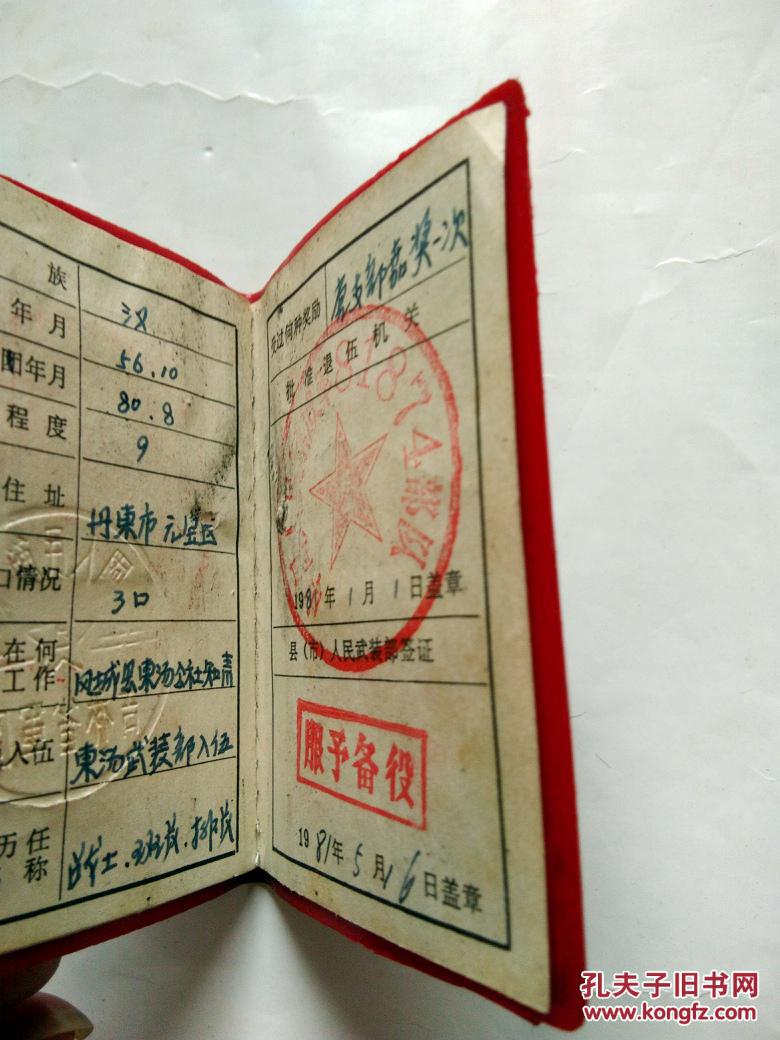 族
汉
年月
56.10
团年月
80.8
程度
9
住址
丹東市元宝区
口情况
3口
在何
工作
凤城县東汤公社知青
入伍
東汤武装部入伍
历任
称
战士.班长.排长
受过何种奖励
党支部嘉奖一次
批准退伍机关
81874部队
1981年1月1日盖章
县(市)人民武装部签证
服予备役
1981年5月16日盖章
孔夫子旧书网
www.kongfz.com